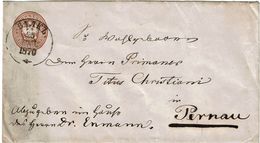 1870
Sr Wohlgeboren
dem Herrn Primaner
Titus Christiani
in
Pernau
Abzugeben im Hause
des Herrn Dr. Enmann.